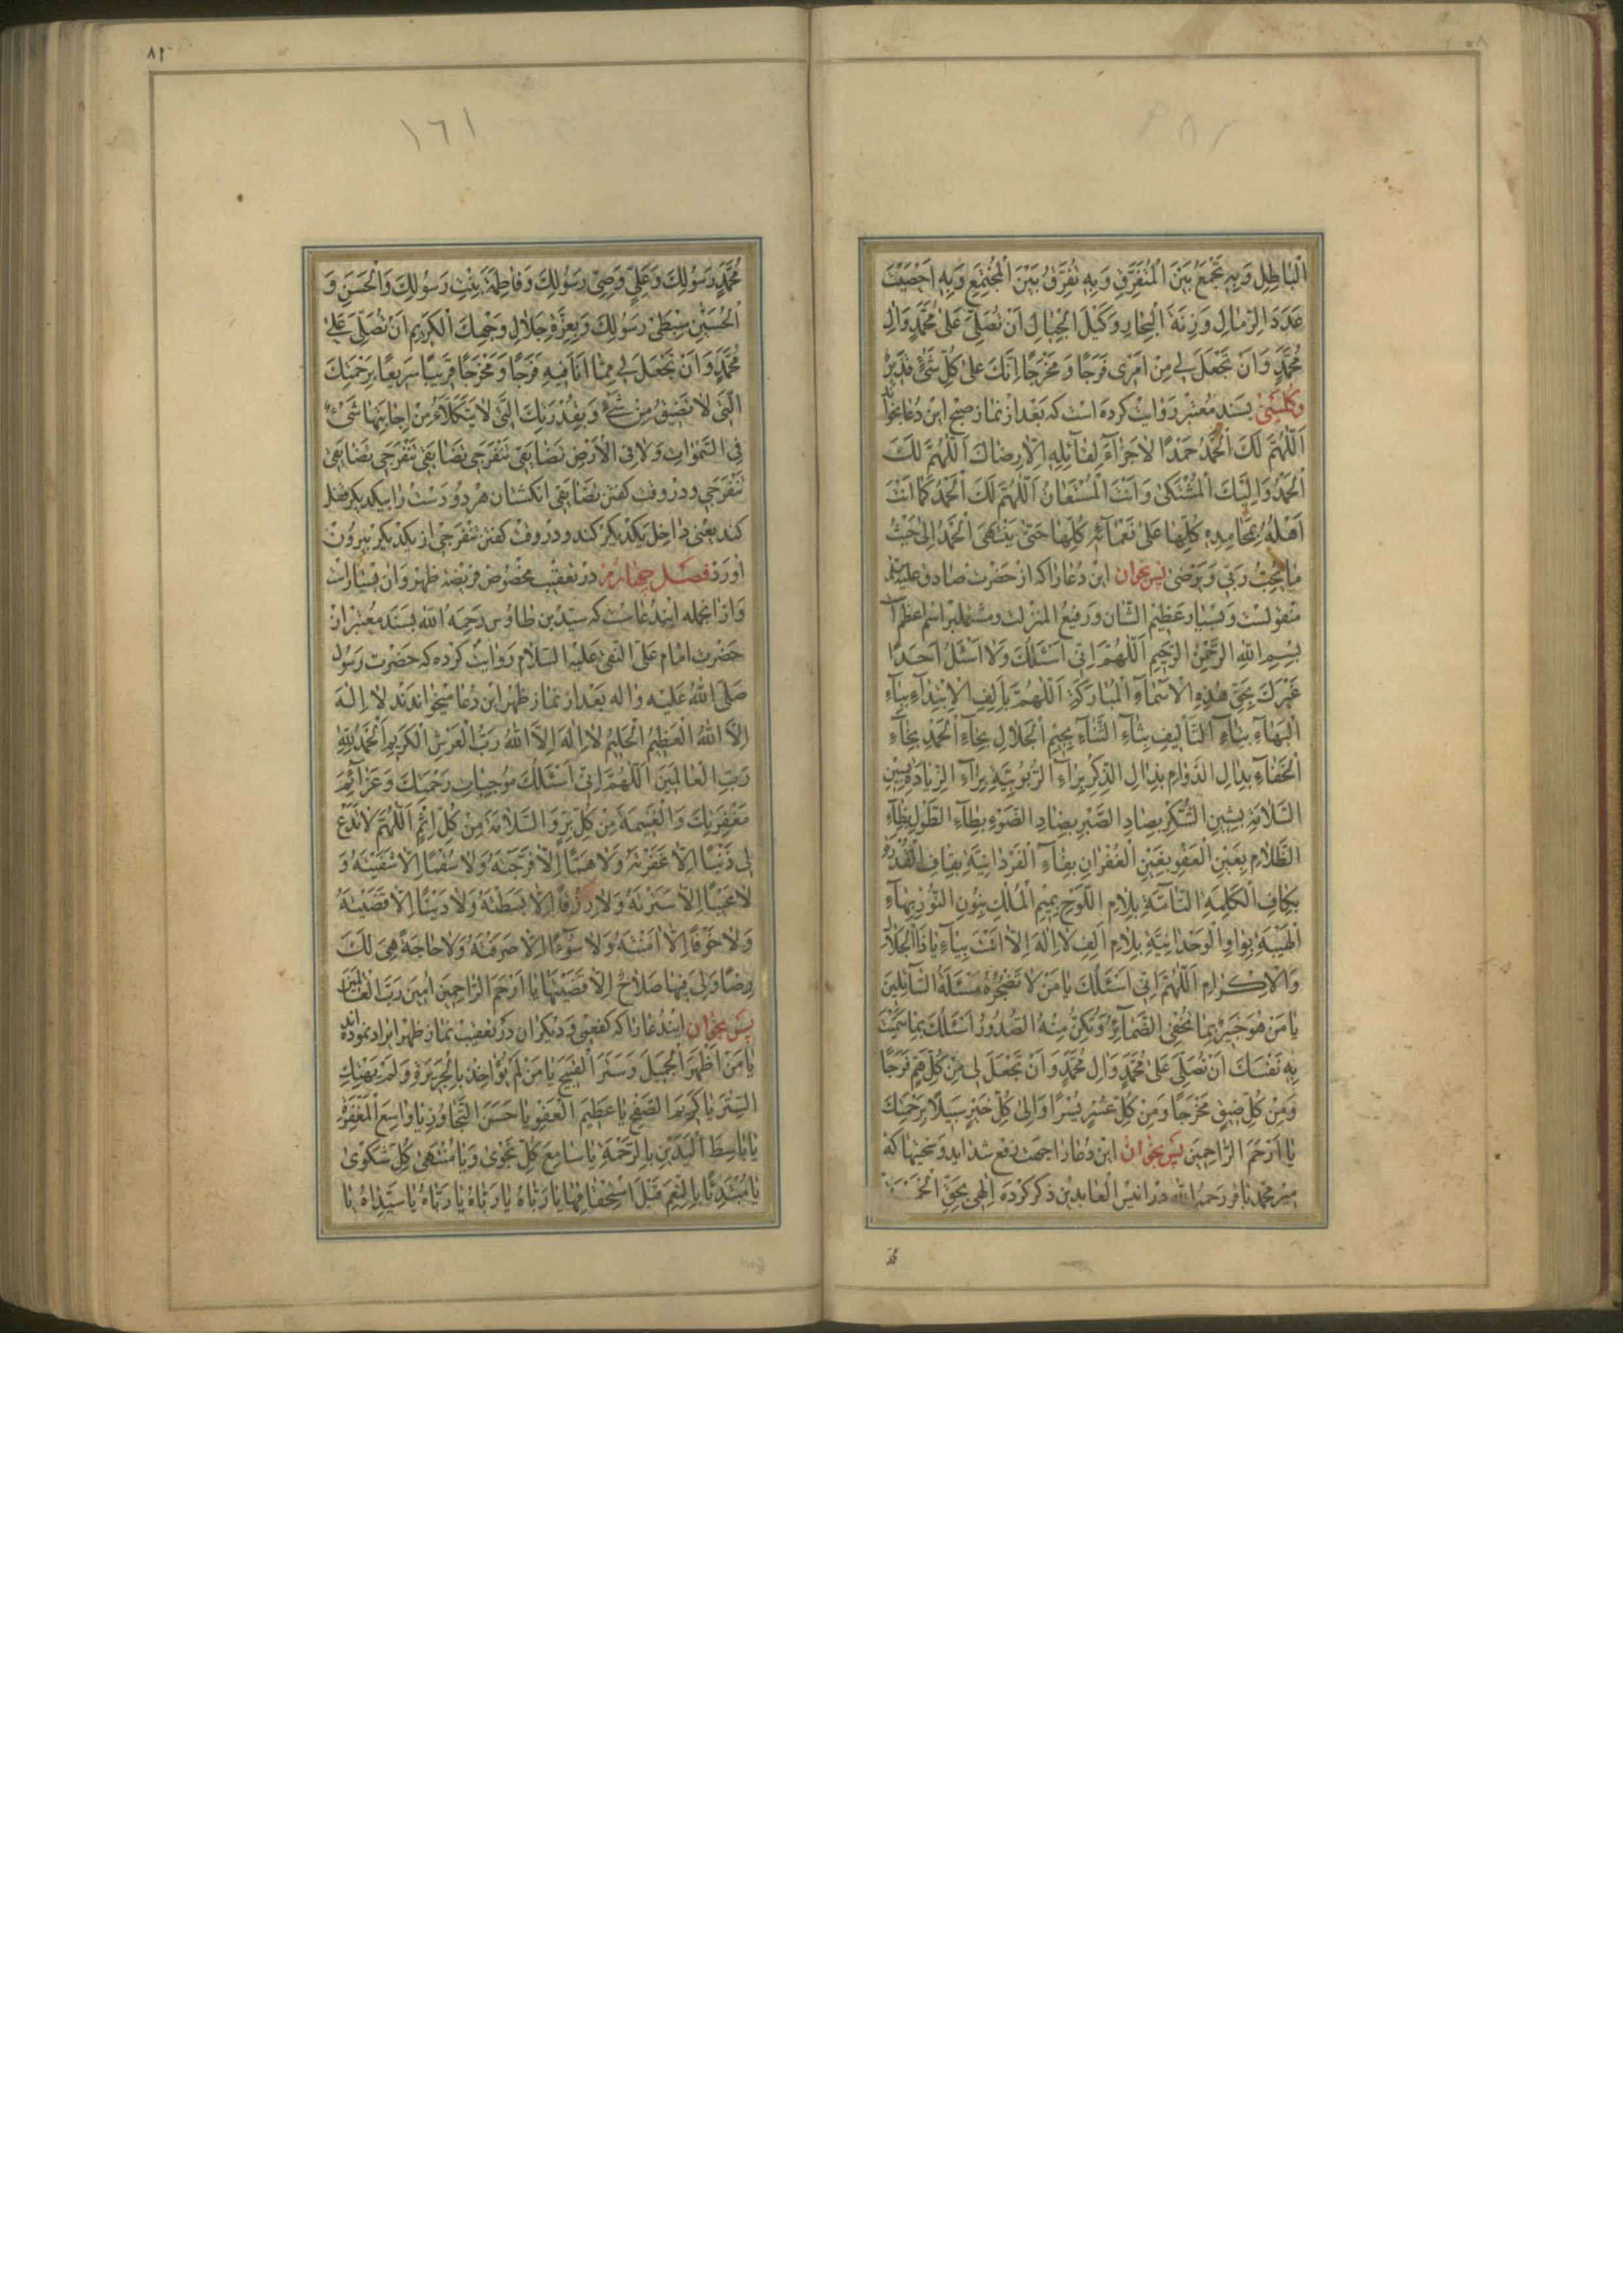 الْبَاطِلِ وَبِهِ تَجْمَعُ بَيْنَ الْمُتَفَرِّقِ وَبِهِ تُفَرِّقُ بَيْنَ الْمُجْتَمِعِ وَبِهِ اَحْصَيْتَ
عَدَدَ الرِّمَالِ وَزِنَةَ الْبِحَارِ وَكَيْلَ الْجِبَالِ اَنْ تُصَلِّىَ عَلىٰ مُحَمَّدٍ وَالِ
مُحَمَّدٍ وَاَنْ تَجْعَلَ لِى مِنْ اَمْرِى فَرَجًا وَمَخْرَجًا اِنَّكَ عَلىٰ كُلِّ شَىْءٍ قَدِيرٌ
وكلينى بسند معتبر روايت كرده است كه بعد از نماز صبح اين دعا بخواند
اَللّٰهُمَّ لَكَ الْحَمْدُ حَمْدًا لاٰ جَزَاءَ لِقَائِلِهِ اِلّا رِضَاكَ اَللّٰهُمَّ لَكَ
الْحَمْدُ وَاِلَيْكَ الْمُشْتَكىٰ وَاَنْتَ الْمُسْتَعَانُ اَللّٰهُمَّ لَكَ الْحَمْدُ كَمَا اَنْتَ
اَهْلُهُ بِمَحَامِدِهِ كُلِّهَا عَلىٰ نَعْمَائِهِ كُلِّهَا حَتّىٰ يَنْتَهِىَ الْحَمْدُ اِلىٰ حَيْثُ
مَا يُحِبُّ رَبِّى وَيَرْضىٰ پس بخوان اين دعا را كه از حضرت صادق عليه
منقولست وبسيار عظيم الشان ورفيع المنزلت ومشتملبر اسم اعظم
بِسْمِ اللهِ الرَّحْمٰنِ الرَّحِيمِ اَللّٰهُمَّ اِنّى اَسْئَلُكَ وَلاٰ اَسْئَلُ اَحَدًا
غَيْرَكَ بِحَقِّ هٰذِهِ الْاَسْمَاءِ الْمُبَارَكَةِ اَللّٰهُمَّ بِاَلِفِ الْاِبْتِدَاءِ بِبَاءِ
الْبَهَاءِ بِتَاءِ التَّأْلِيفِ بِثَاءِ الثَّنَاءِ بِجِيمِ الْجَلَالِ بِحَاءِ الْحَمْدِ بِخَاءِ
الْخَفَاءِ بِدَالِ الدَّوَامِ بِذَالِ الذِّكْرِ بِرَاءِ الرُّبُوبِيَّةِ بِزَاءِ الزِّيَادَةِ بِسِينِ
السَّلَامَةِ بِشِينِ الشُّكْرِ بِصَادِ الصَّبْرِ بِضَادِ الضَّوْءِ بِطَاءِ الطَّوْلِ بِظَاءِ
الظَّلَامِ بِعَيْنِ الْعَفْوِ بِغَيْنِ الْغُفْرَانِ بِفَاءِ الْفَرْدَانِيَّةِ بِقَافِ الْقُدْرَةِ
بِكَافِ الْكَلِمَةِ التَّامَّةِ بِلَامِ اللَّوْحِ بِمِيمِ الْمُلْكِ بِنُونِ النُّورِ بِهَاءِ
الْهَيْبَةِ بِوَاوِ الْوَحْدَانِيَّةِ بِلَامِ اَلِفِ لاٰ اِلٰهَ اِلّا اَنْتَ بِيَاءِ يَا ذَا الْجَلَالِ
وَالْاِكْرَامِ اَللّٰهُمَّ اِنّى اَسْئَلُكَ يَا مَنْ لاٰ تُضْجِرُهُ مَسْئَلَةُ السَّائِلِينَ
يَا مَنْ هُوَ خَبِيرٌ بِمَا تُخْفِى الضَّمَائِرُ وَتُكِنُّ مِنْهُ الصُّدُورُ اَسْئَلُكَ بِمَا سَمَّيْتَ
بِهِ نَفْسَكَ اَنْ تُصَلِّىَ عَلىٰ مُحَمَّدٍ وَالِ مُحَمَّدٍ وَاَنْ تَجْعَلَ لِى مِنْ كُلِّ هَمٍّ فَرَجًا
وَمِنْ كُلِّ ضِيقٍ مَخْرَجًا وَمِنْ كُلِّ عُسْرٍ يُسْرًا وَاِلىٰ كُلِّ خَيْرٍ سَبِيلًا بِرَحْمَتِكَ
يَا اَرْحَمَ الرَّاحِمِينَ پس بخوان اين دعا را جهت دفع شدايد وسختيها كه
مير محمد باقر رحمه الله در انيس العابدين ذكر كرده اِلٰهِى بِحَقِّ
٨١
١٦١
مُحَمَّدٍ رَسُولِكَ وَعَلِىٍّ وَصِىِّ رَسُولِكَ وَفَاطِمَةَ بِنْتِ رَسُولِكَ وَالْحَسَنِ وَ
الْحُسَيْنِ سِبْطَىْ رَسُولِكَ وَبِعِزَّةِ جَلَالِ وَجْهِكَ الْكَرِيمِ اَنْ تُصَلِّىَ عَلىٰ
مُحَمَّدٍ وَاَنْ تَجْعَلَ لِى مِمَّا اَنَا فِيهِ فَرَجًا وَمَخْرَجًا قَرِيبًا سَرِيعًا بِرَحْمَتِكَ
الَّتِى لاٰ تَضِيقُ مِنْ شَىْءٍ وَبِقُدْرَتِكَ الَّتِى لاٰ يَتَكَأَّدُ مِنْ اِجَابَتِهَا شَىْءٌ
فِى السَّمٰوَاتِ وَلاٰ فِى الْاَرْضِ تَضَايَقِى تَنْفَرِجِى تَضَايَقِى تَنْفَرِجِى تَضَايَقِى
تَنْفَرِجِى ودر وقت كفتن تَضَايَقِى انكشتان هر دو دست را بيكديكر
كند يعنى داخل يكديكر كند ودر وقت كفتن تَنْفَرِجِى از يكديكر بيرون
اورد فصل چهارم در تعقيب مخصوص فريضه ظهر وآن بسيار است
واز انجمله ايندعاست كه سيد بن طاوس رحمه الله بسند معتبر از
حضرت امام على النقى عليه السلام روايت كرده كه حضرت رسول
صلى الله عليه واله بعد از نماز ظهر اين دعا ميخواندند لاٰ اِلٰهَ
اِلّا اللهُ الْعَظِيمُ الْحَلِيمُ لاٰ اِلٰهَ اِلّا اللهُ رَبُّ الْعَرْشِ الْكَرِيمِ اَلْحَمْدُ لِلّٰهِ
رَبِّ الْعَالَمِينَ اَللّٰهُمَّ اِنّى اَسْئَلُكَ مُوجِبَاتِ رَحْمَتِكَ وَعَزَائِمَ
مَغْفِرَتِكَ وَالْغَنِيمَةَ مِنْ كُلِّ بِرٍّ وَالسَّلَامَةَ مِنْ كُلِّ اِثْمٍ اَللّٰهُمَّ لاٰ تَدَعْ
لِى ذَنْبًا اِلّا غَفَرْتَهُ وَلاٰ هَمًّا اِلّا فَرَّجْتَهُ وَلاٰ سُقْمًا اِلّا شَفَيْتَهُ وَ
لاٰ عَيْبًا اِلّا سَتَرْتَهُ وَلاٰ رِزْقًا اِلّا بَسَطْتَهُ وَلاٰ دَيْنًا اِلّا قَضَيْتَهُ
وَلاٰ خَوْفًا اِلّا اٰمَنْتَهُ وَلاٰ سُوءًا اِلّا صَرَفْتَهُ وَلاٰ حَاجَةً هِىَ لَكَ
رِضًا وَلِى فِيهَا صَلَاحٌ اِلّا قَضَيْتَهَا يَا اَرْحَمَ الرَّاحِمِينَ اٰمِينَ رَبَّ الْعَالَمِينَ
پس بخوان ايندعا را كه كفعمى وديكران در تعقيب نماز ظهر ايراد نموده اند
يَا مَنْ اَظْهَرَ الْجَمِيلَ وَسَتَرَ الْقَبِيحَ يَا مَنْ لَمْ يُؤَاخِذْ بِالْجَرِيرَةِ وَلَمْ يَهْتِكِ
السِّتْرَ يَا كَرِيمَ الصَّفْحِ يَا عَظِيمَ الْعَفْوِ يَا حَسَنَ التَّجَاوُزِ يَا وَاسِعَ الْمَغْفِرَةِ
يَا بَاسِطَ الْيَدَيْنِ بِالرَّحْمَةِ يَا سَامِعَ كُلِّ نَجْوىٰ وَيَا مُنْتَهىٰ كُلِّ شَكْوىٰ
يَا مُبْتَدِئًا بِالنِّعَمِ قَبْلَ اسْتِحْقَاقِهَا يَا رَبَّاهُ يَا رَبَّاهُ يَا رَبَّاهُ يَا سَيِّدَاهُ يَا